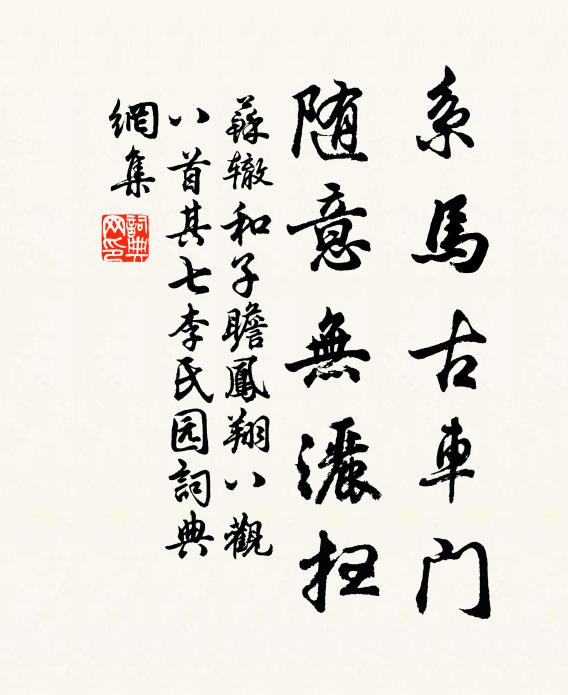 系馬古車門
随意無灑扫
蘇辙和子瞻鳳翔八觀
八首其七李氏园詞典
網集
詞典网印